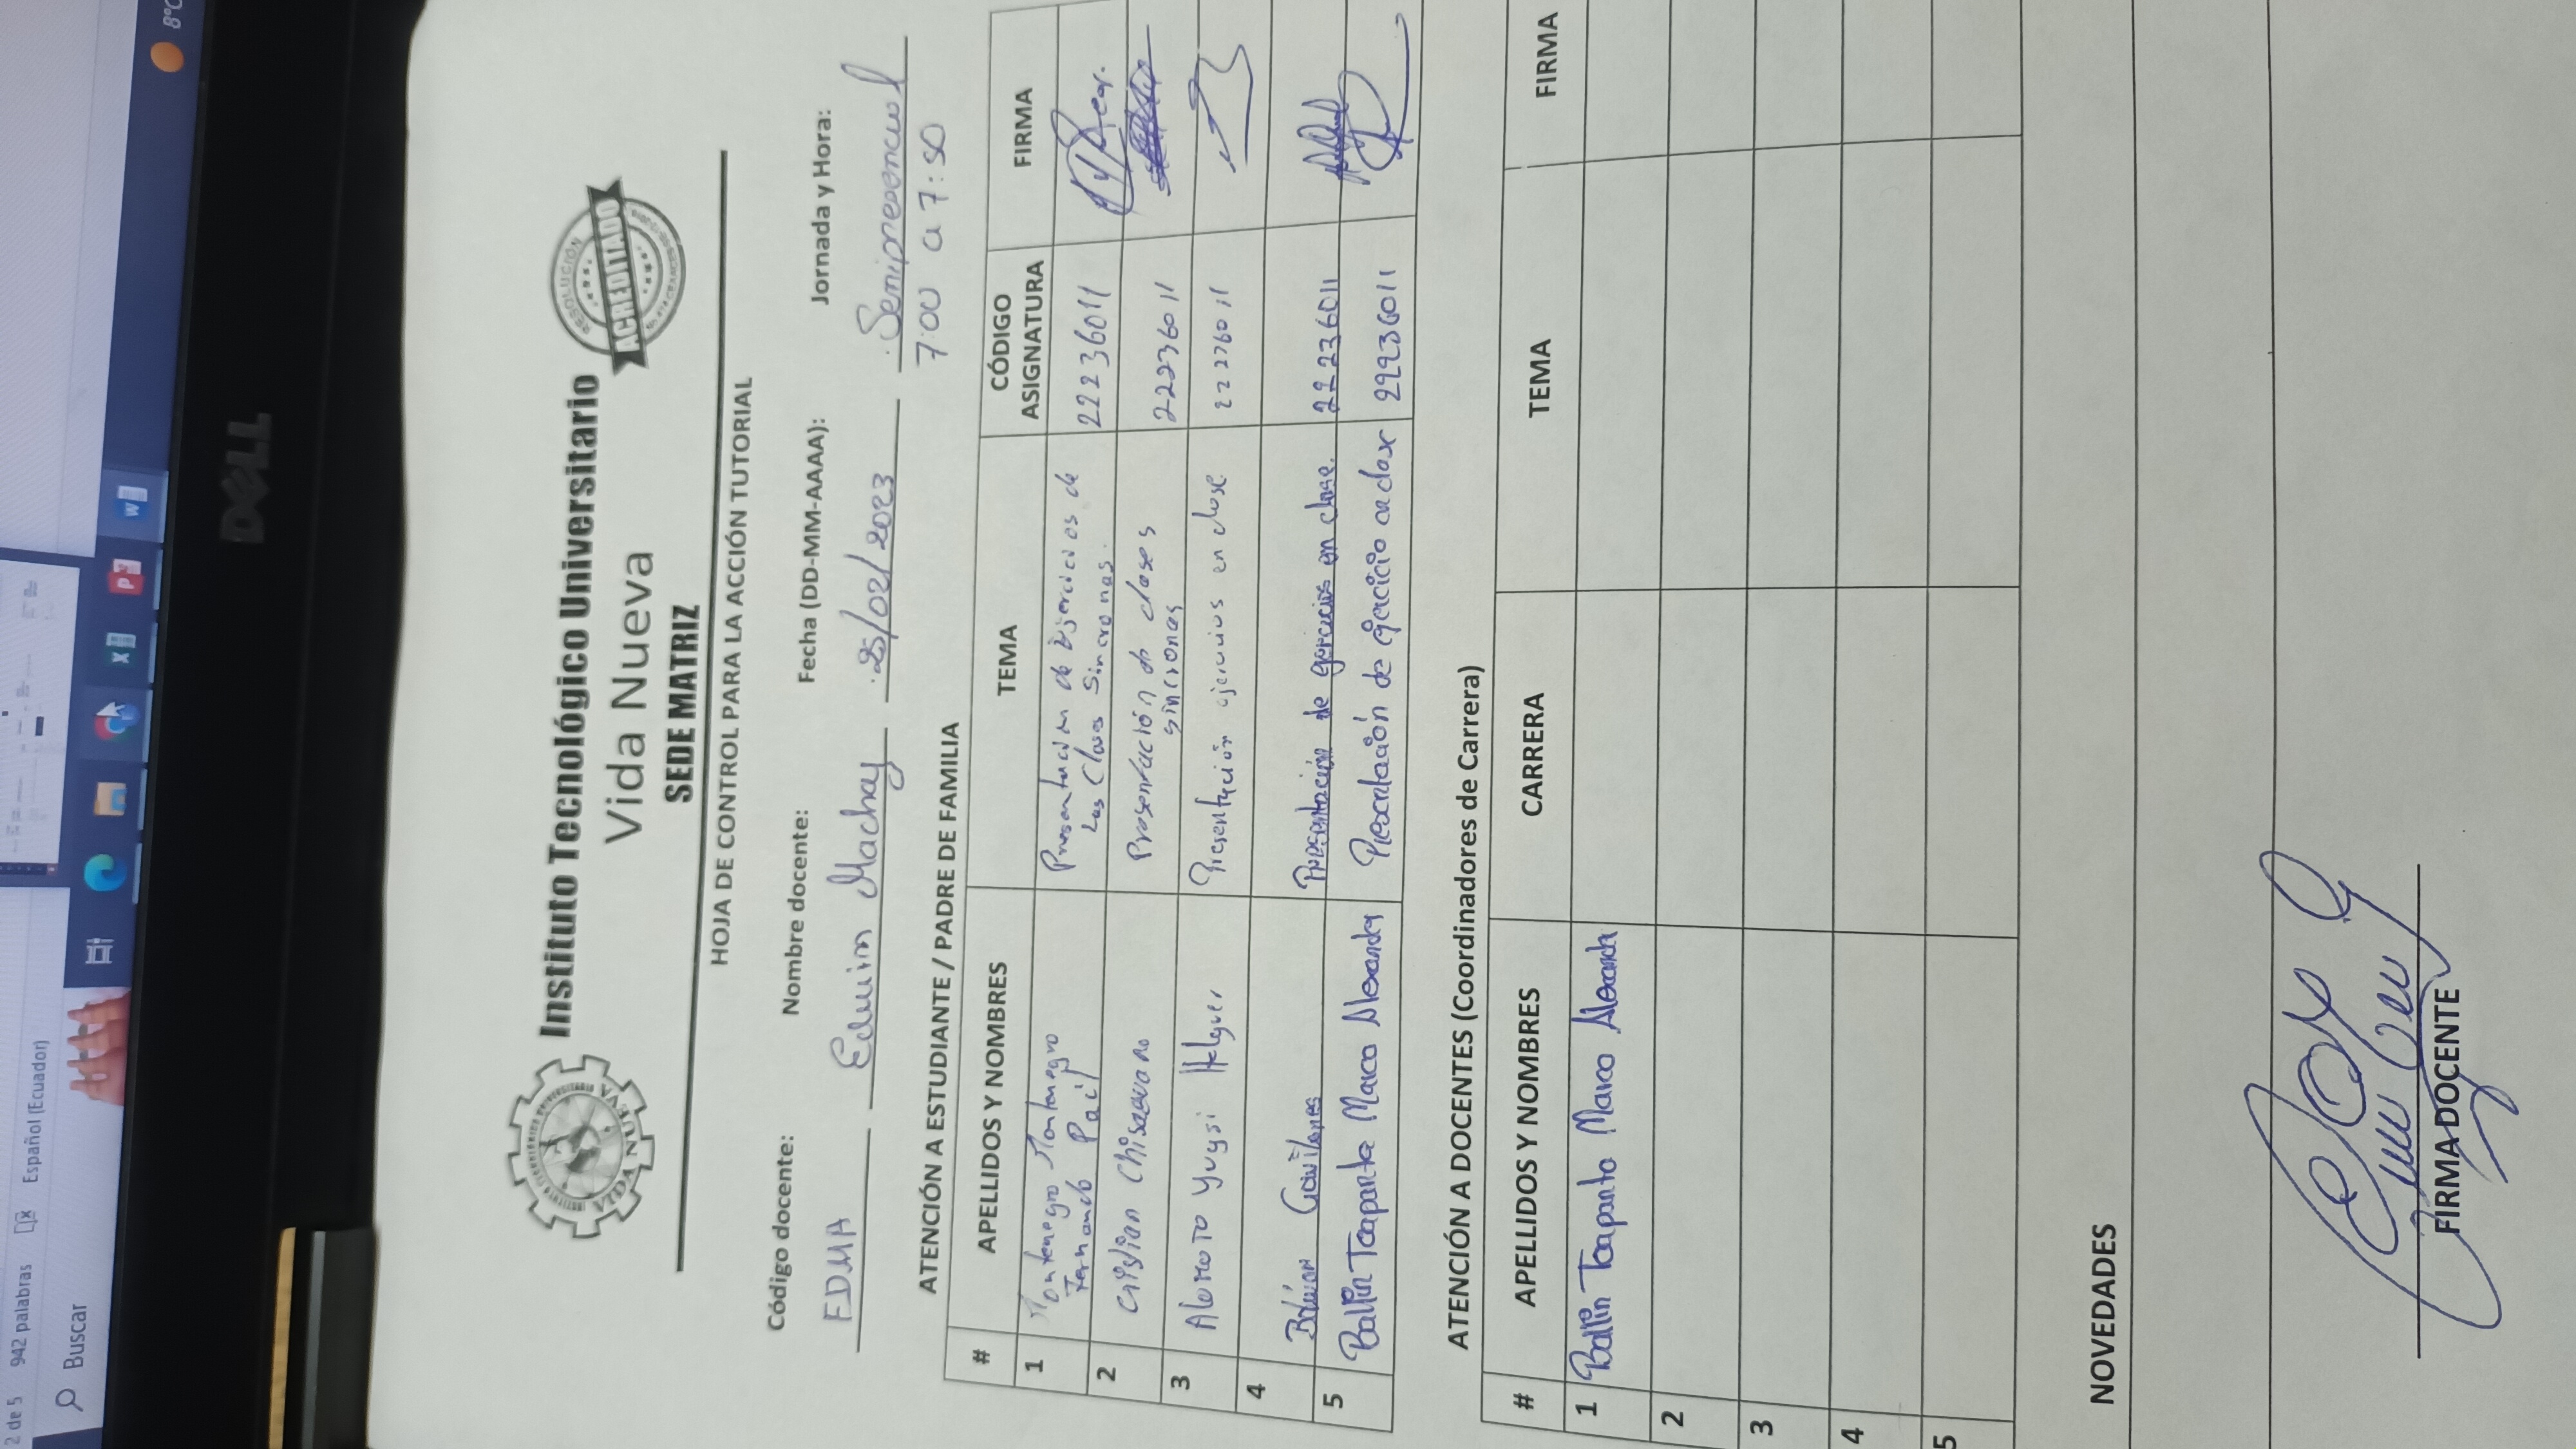 2 de 5 942 palabras Español (Ecuador)
Buscar
8°C
DELL
Instituto Tecnológico Universitario
Vida Nueva
SEDE MATRIZ
VIDA NUEVA
RESOLUCIÓN
ACREDITADO
HOJA DE CONTROL PARA LA ACCIÓN TUTORIAL
Código docente: Nombre docente: Fecha (DD-MM-AAAA): Jornada y Hora:
EDMA Edwin Machay 25/02/2023 Semipresencial
7:00 a 7:50
ATENCIÓN A ESTUDIANTE / PADRE DE FAMILIA
# APELLIDOS Y NOMBRES TEMA CÓDIGO ASIGNATURA FIRMA
1 Montenegro Montenegro Presentación de Ejercicios de
Fernando Las Clases Sincronas. 22236011
2 Cristian Chisaguano Presentación de clases
sincronas 22236011
3 Alomoto Yugsi Holguer Presentación ejercicios en clase 22236011
4
Gavilanes Presentación de ejercicios en clase. 22236011
5 Toapanta Marco Alexander Presentación de ejercicio en clase 22236011
ATENCIÓN A DOCENTES (Coordinadores de Carrera)
# APELLIDOS Y NOMBRES CARRERA TEMA FIRMA
1 Toapanta Marco Alexander
2
3
4
5
NOVEDADES
FIRMA DOCENTE